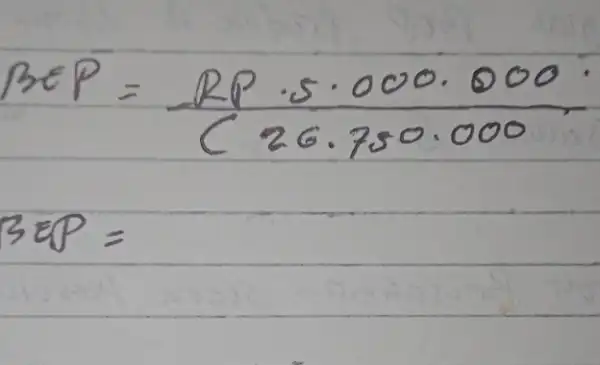 BEP = RP . 5 . 000 . 000 .
( 26 . 750 . 000
BEP =